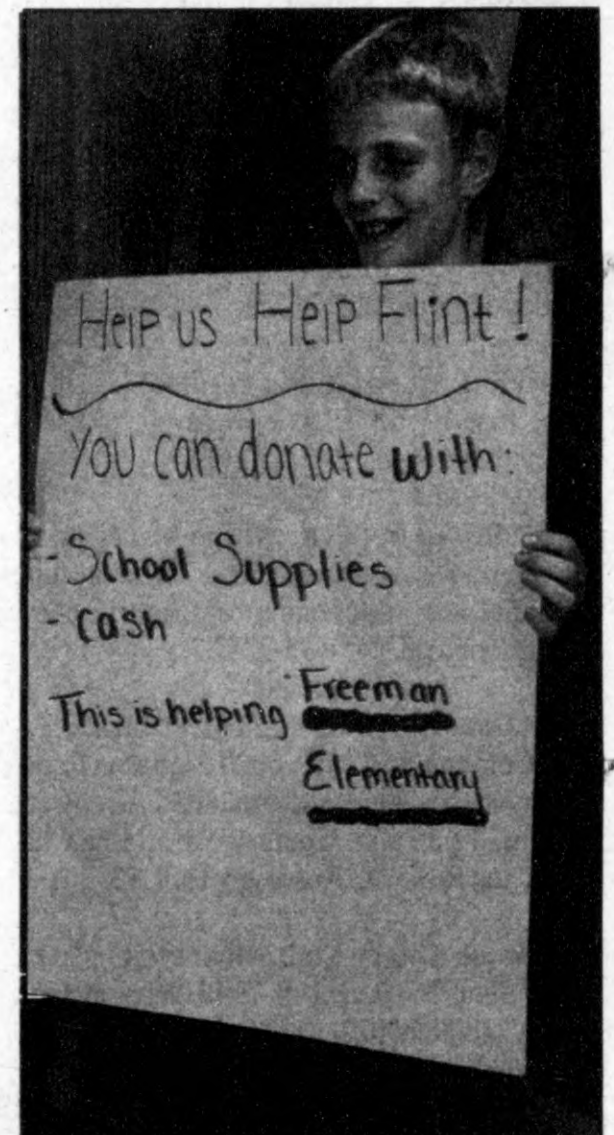 Help us Help Flint!
You can donate with:
- School Supplies
- cash
This is helping Freeman
Elementary